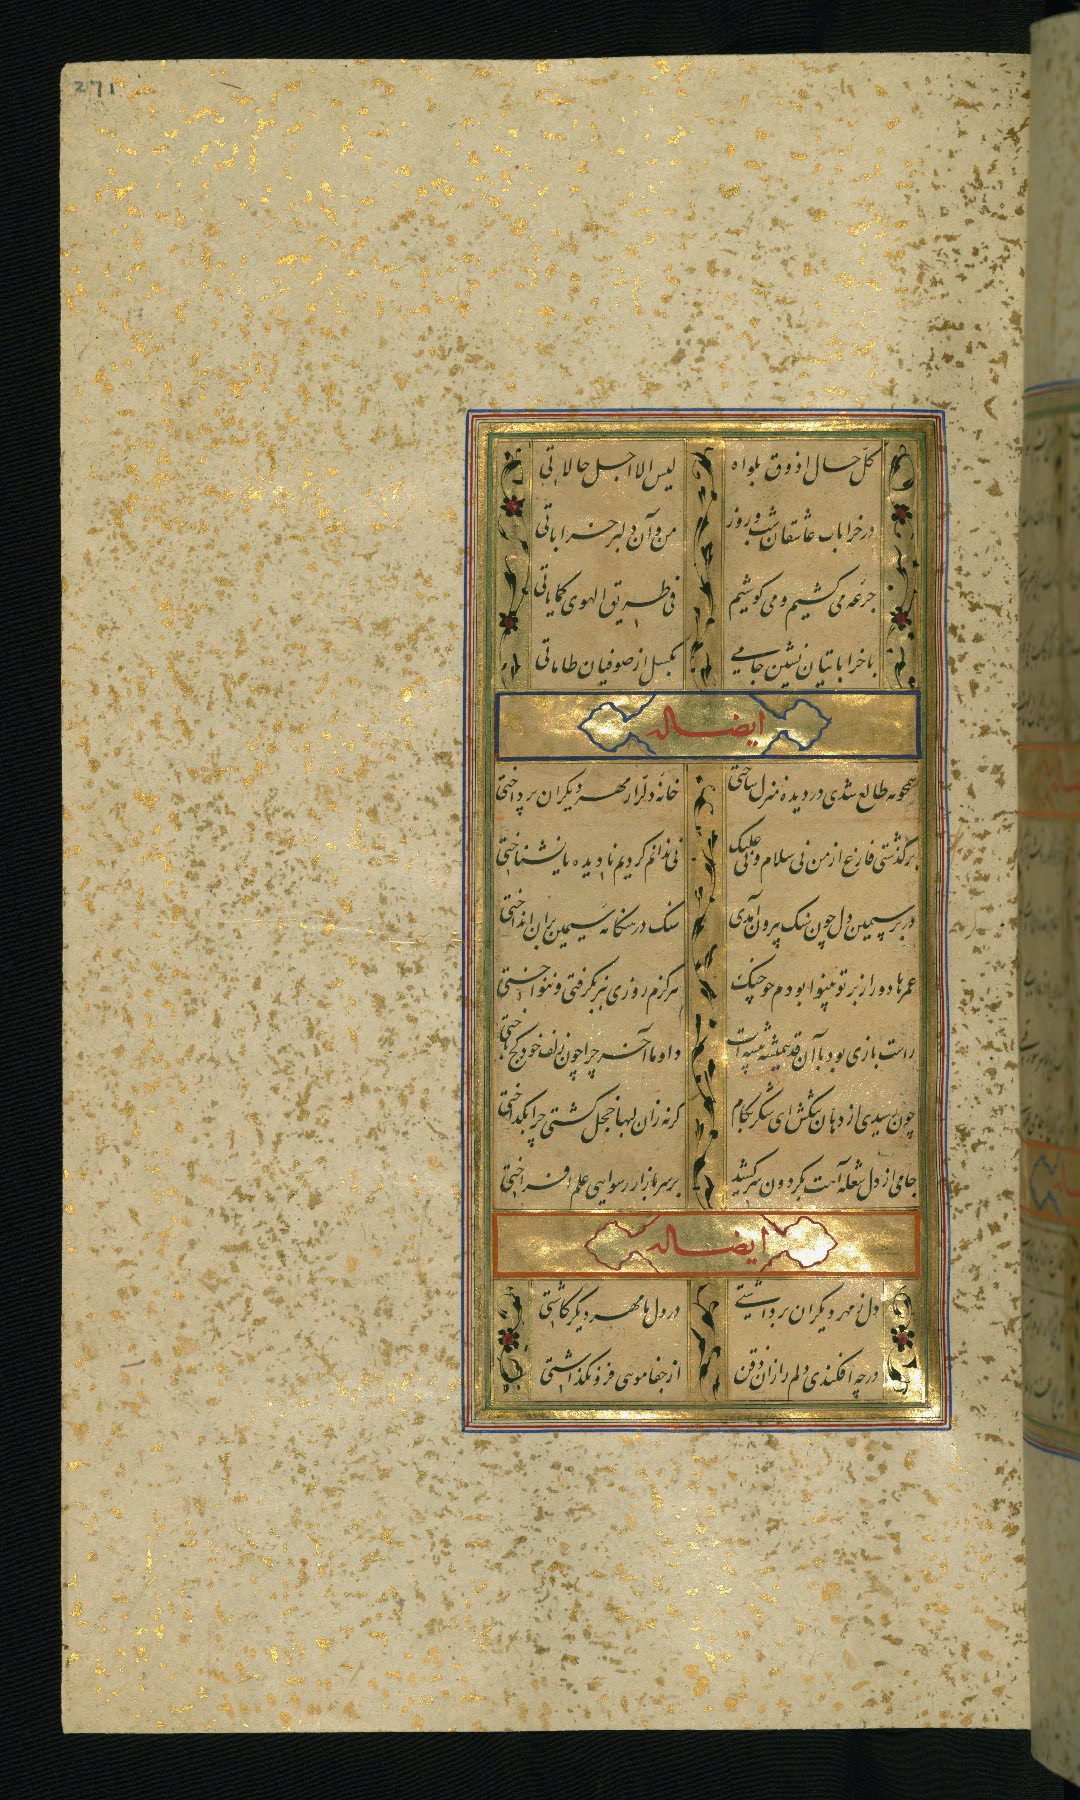 271
کل حال اذوق بلواه
لیس الا اجل حالاتی
در خرابات عاشقان شب و روز
من و آن دلبر خراباتی
جرعه می کشیم و می کوشیم
فی طریق الهوی کمایاتی
با خراباتیان نشین جامی
بکسل از صوفیان طاماتی
ایضا له
همچو مه طالع شدی در دیده منزل ساختی
خانه دل را ز مهر دیکران پرداختی
برگذشتی فارغ از من نی سلام و نی علیک
نی ندانم کردیم نادیده یا نشناختی
در بر سیمین دل چون سنک بیرون آمدی
سنک در هنکامه سیمین بران انداختی
عمرها دور از بر تو بینوا بودم چو چنک
هرکزم روزی ببر نکرفتی و ننواختی
راست بازی بود با آن قد همیشه پیشه ات
داو ما آخر چرا چون زلف خود کج باختی
چون رسیدی از دهان تنکش ای شکر بکام
کرنه زان لبها خجل کشتی چرا بکداختی
جامی از دل شعله آهت بکردون سر کشید
بر سر بازار رسوایی علم افراختی
ایضا له
دل ز مهر دیکران برداشتی
در دل ما مهر دیکر کاشتی
در چه افکندی دلم را زان ذقن
از جفا مویی فرو نکذاشتی